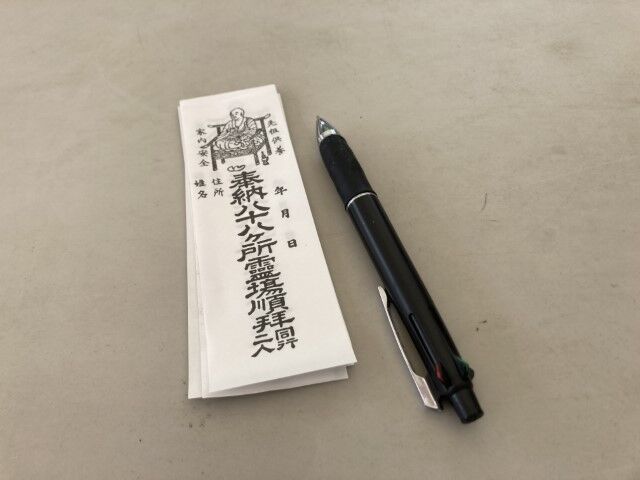 先祖供養
年 月 日
奉納八十八ヶ所靈場順拝
同行
二人
家内安全
住所
姓名